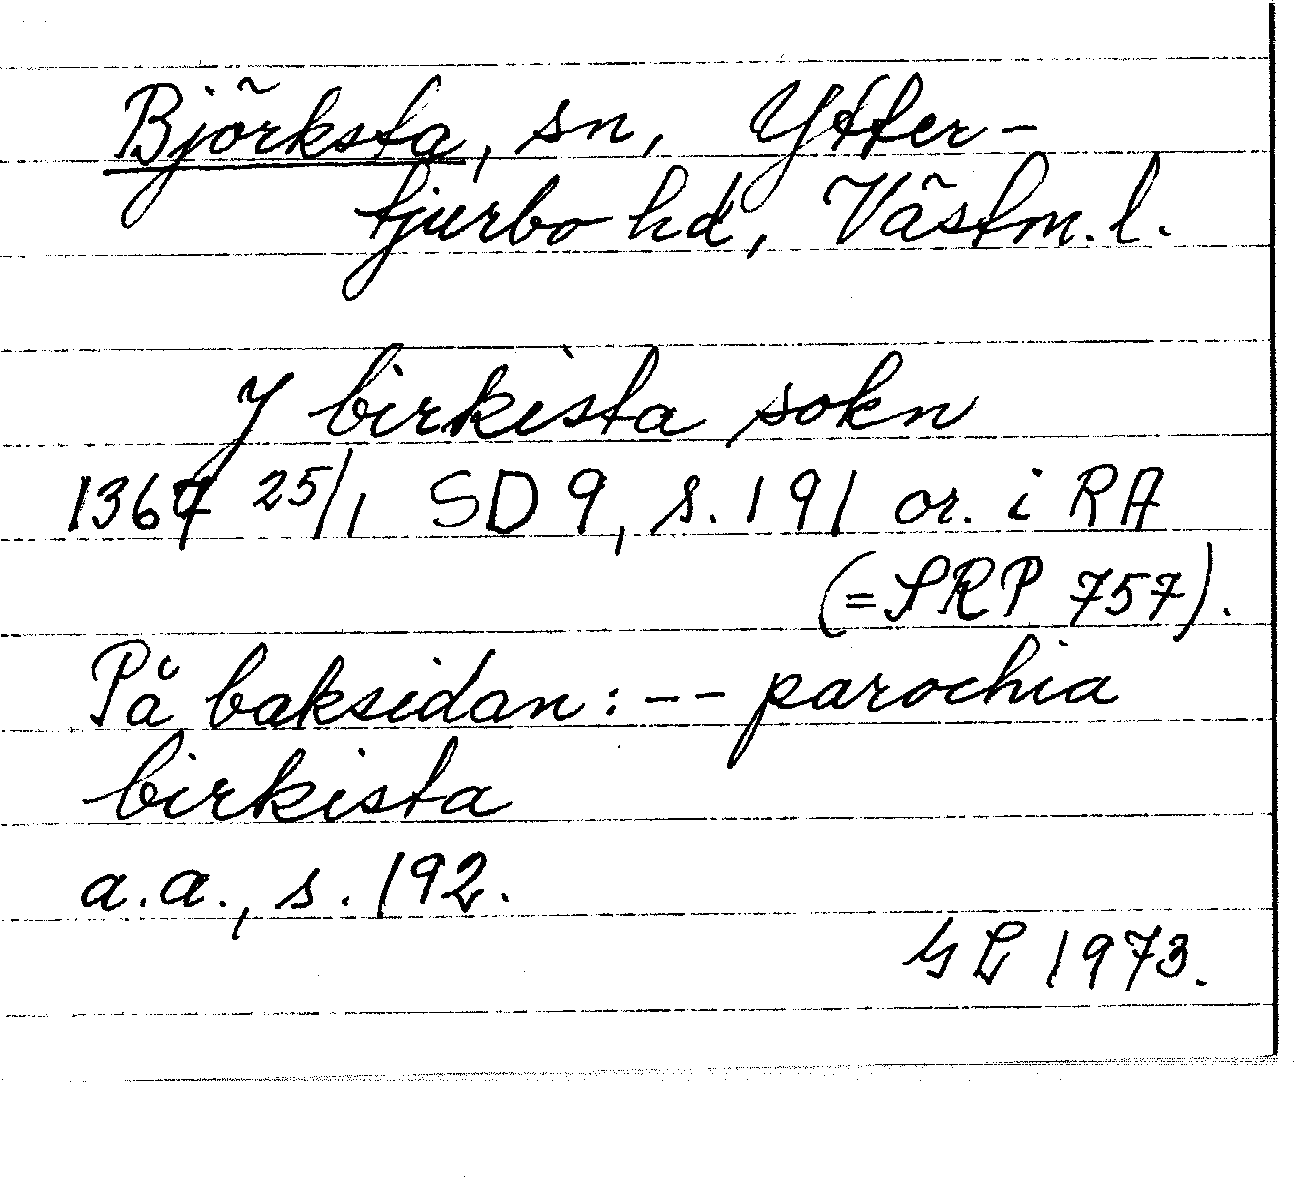 Björksta, sn, Ytter-
tjurbo hd, Västm. l.
J birkista sokn
1367 25/1 SD 9, s. 191 or. i RA
(= SRP 757).
På baksidan: -- parochia
birkista
a.a., s. 192.
GL 1973.